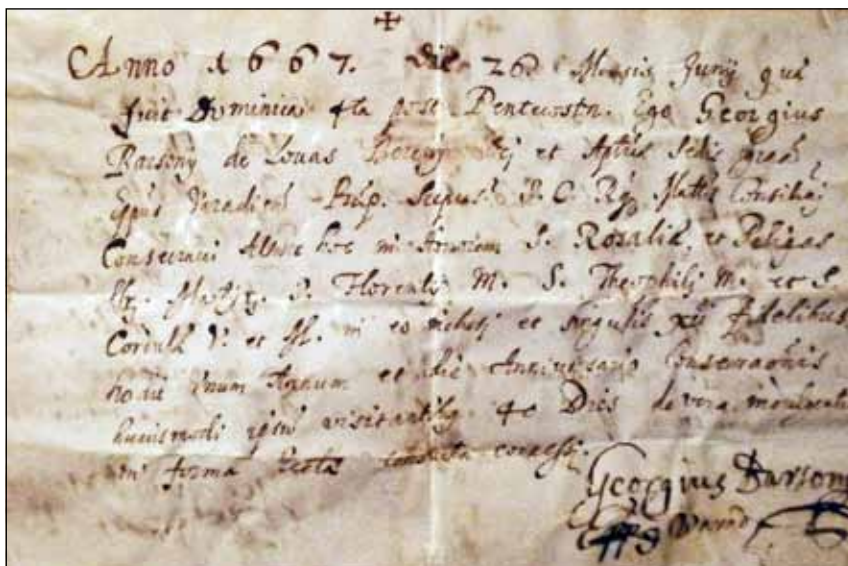 Anno 1667. die 26 Mensis Junij quæ
fuit Dominica 4ta post Pentecostn. Ego Georgius
Barsony de Lovas Bereny Dej et Aptcæ Sedis graã
Eppus Varadien Præp. Scepus. S. C. Rg Mattis Consiliarius
Consecravi Altare hoc in honorem S. Rosaliæ, et Reliqas
S. Florentij M. S. Theophilj M. et S.
V. et M. in eo inclusj et singulis Fidelibus
hodie Unum Annum et die Anniversario Consecraõnis
huiusmodi ipsũ visitantibg 40 Dies de vera indulgentia
in forma Ecclæ consueta concessj.
Georgius Barsony
Eppus Varad